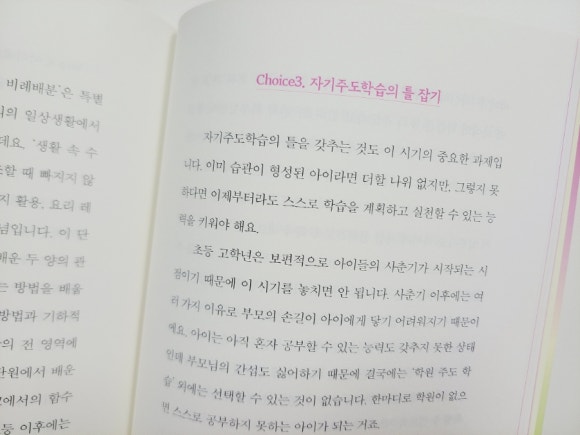 비례배분'은 특별
의 일상생활에서
데요. '생활 속 수
할 때 빠지지 않
지 활용, 요리 레
념입니다. 이 단
배운 두 양의 관
는 방법을 배울
방법과 기하적
의 전 영역에
단원에서 배운
에서의 함수
등 이후에는
Choice3. 자기주도학습의 틀 잡기
자기주도학습의 틀을 갖추는 것도 이 시기의 중요한 과제입
니다. 이미 습관이 형성된 아이라면 더할 나위 없지만, 그렇지 못
하다면 이제부터라도 스스로 학습을 계획하고 실천할 수 있는 능
력을 키워야 해요.
초등 고학년은 보편적으로 아이들의 사춘기가 시작되는 시
점이기 때문에 이 시기를 놓치면 안 됩니다. 사춘기 이후에는 여
러 가지 이유로 부모의 손길이 아이에게 닿기 어려워지기 때문이
에요. 아이는 아직 혼자 공부할 수 있는 능력도 갖추지 못한 상태
인데 부모님의 간섭도 싫어하기 때문에 결국에는 '학원 주도 학
습' 외에는 선택할 수 있는 것이 없습니다. 한마디로 학원이 없으
면 스스로 공부하지 못하는 아이가 되는 거죠.